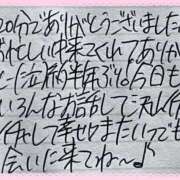 20分でありがとうございました
お忙しい中来てくれてありが
と(泣)約半年ぶり今日も
いろんなお話してシスイ
イチャして幸せ♡またいつでも
会いに来てね〜♪